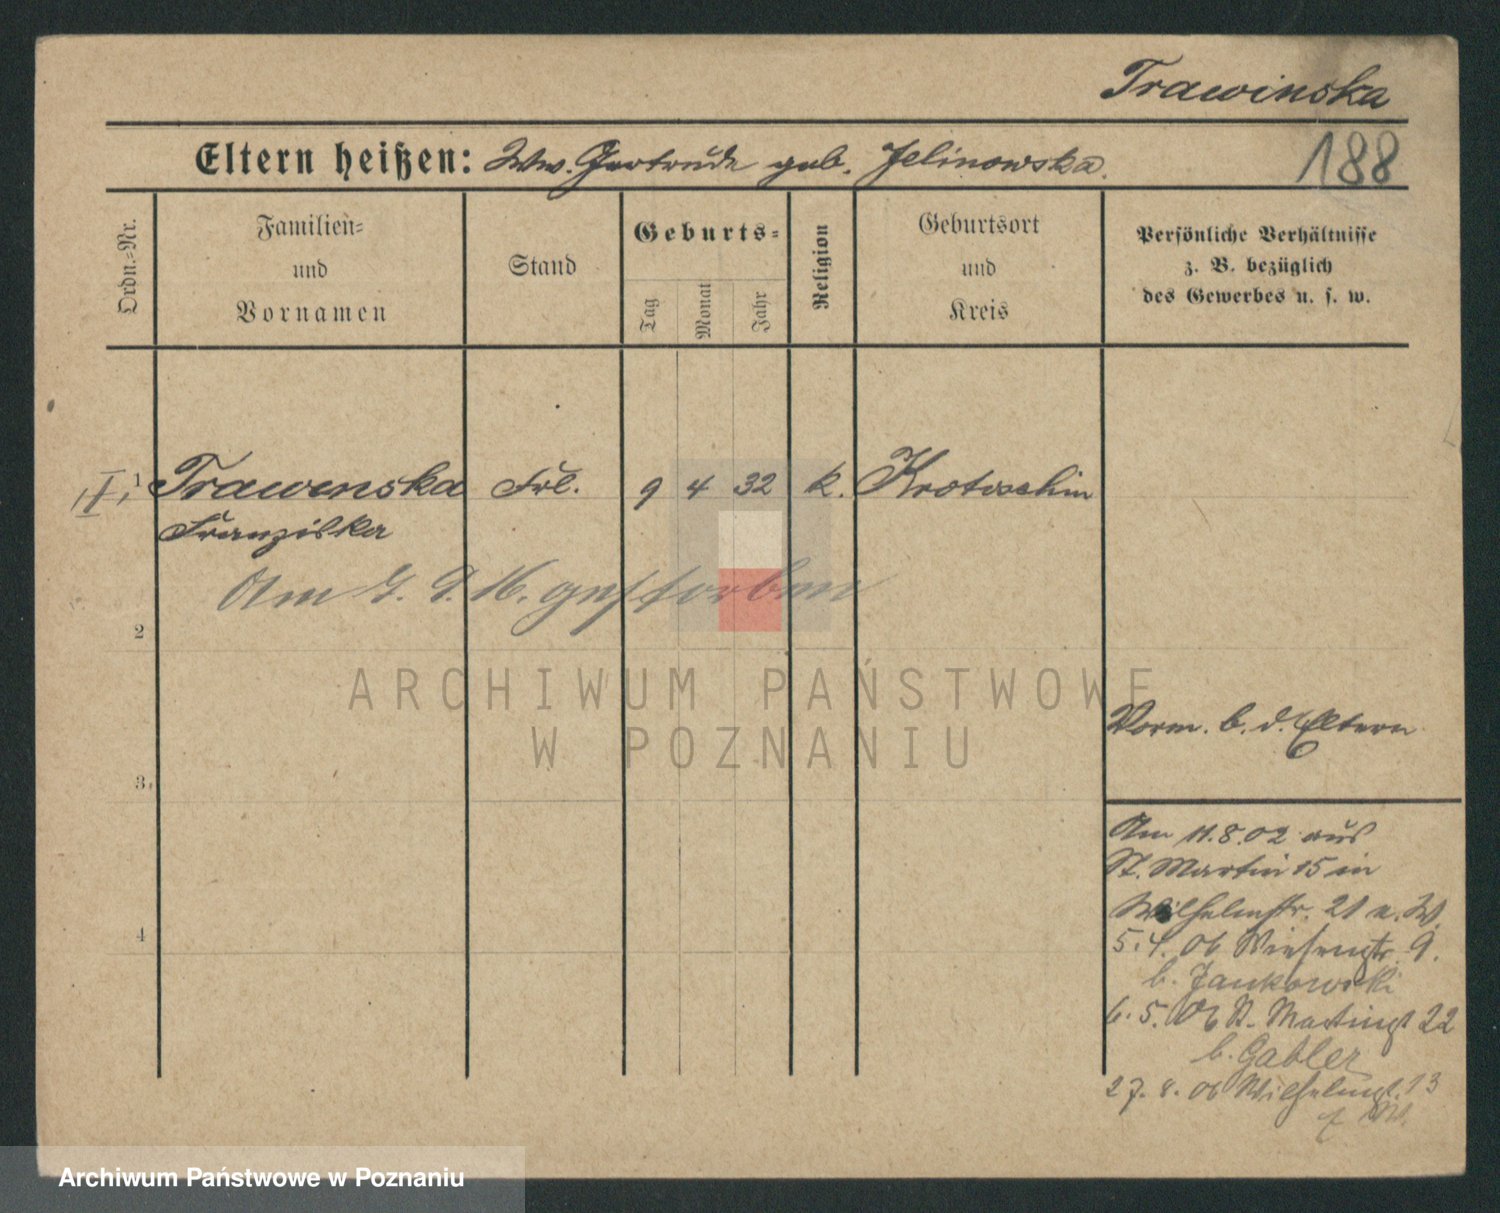 Trawinska
188
Eltern heißen: Ww. Gertrude geb. Jelinowska.
Ordn.-Nr.
Familien-
und
Vornamen
Stand
Geburts-
Tag
Monat
Jahr
Religion
Geburtsort
und
Kreis
Persönliche Verhältnisse
z. B. bezüglich
des Gewerbes u. s. w.
1 Trawinska Frl. 9 4 32 k. Krotoschin
Franziska
Am 7. 9. 16. gestorben
2
ARCHIWUM PAŃSTWOWE
W POZNANIU
Vorm. b. d. Eltern
3
Am 11.8.02 aus
St. Martin 15 in
Wilhelmstr. 21 a. W.
4
5.4. 06 Wiesenstr. 9.
b. Jankowski
6.5. 06 St. Martinst 22
b. Gabler
27. 8. 06 Wilhelmst. 13
Archiwum Państwowe w Poznaniu